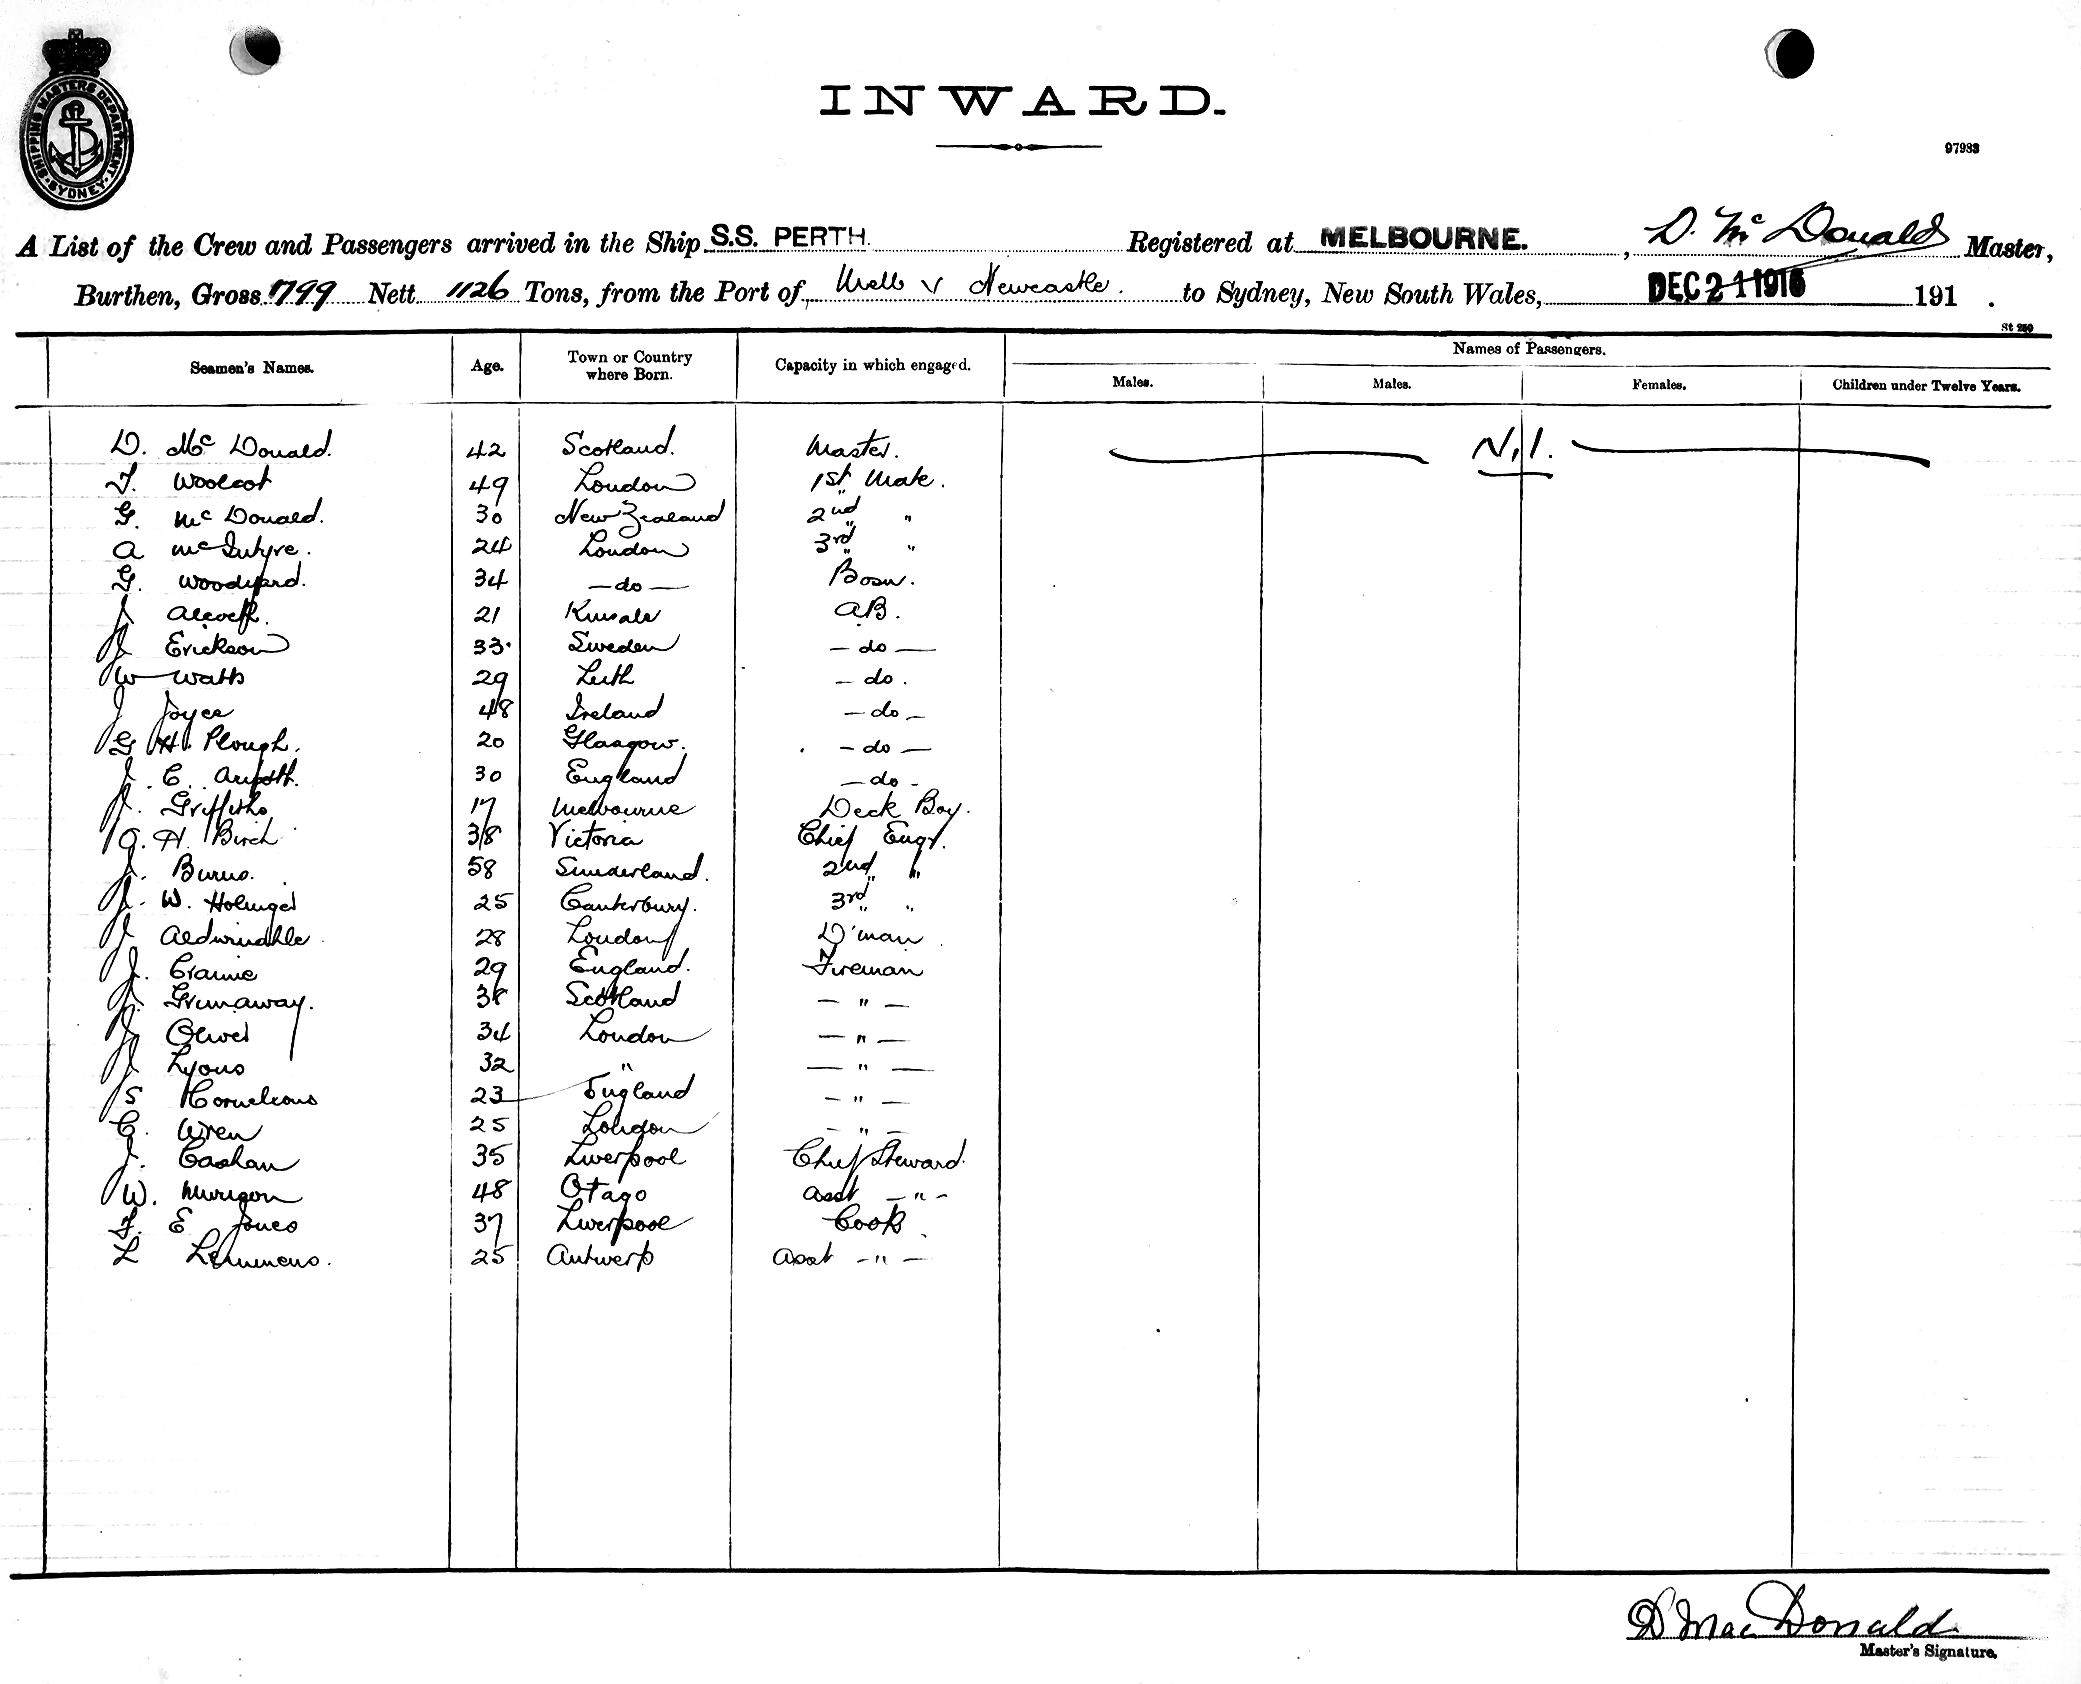 SHIPPING MASTERS DEPARTMENT SYDNEY
INWARD.
97983
A List of the Crew and Passengers arrived in the Ship S.S. PERTH. Registered at MELBOURNE. , D. Mc Donald Master,
Burthen, Gross 1799 Nett 1126 Tons, from the Port of, Melb v Newcastle. to Sydney, New South Wales, DEC 21 1916 191 .
St 250
Seamen's Names. Age. Town or Country where Born. Capacity in which engaged. Names of Passengers.
Males. Males. Females. Children under Twelve Years.
D. Mc Donald. 42 Scotland. Master. Nil.
F. Woolcot 49 London 1st Mate.
G. Mc Donald. 30 New Zealand 2nd "
A McIntyre. 24 London 3rd "
G. Woodyard. 34 - do - Bosn.
J 21 Kinsale AB.
J Erickson 33 Sweden - do -
W Watts 29 Leith - do.
J Joyce 48 Ireland - do -
G H. Plough. 20 Glasgow. - do -
J. C. 30 England - do -
J. Griffiths 17 Melbourne Deck Boy.
G. H. Birch 38 Victoria Chief Engr.
J. Burns. 58 Sunderland. 2nd "
J. W. Holinger 25 Canterbury. 3rd "
J Aldwinckle 28 London D'man
J. 29 England. Fireman
J. Greenaway. 38 Scotland - " -
J Oliver 34 London - " -
J Lyons 32 " - " -
S Cornelious 23 England - " -
C. Wren 25 London - " -
J. Cashan 35 Liverpool Chief Steward.
W. 48 Otago Asst - " -
F. E Jones 37 Liverpool Cook
L Lemmens. 25 Antwerp Asst - " -
D MacDonald
Master's Signature.